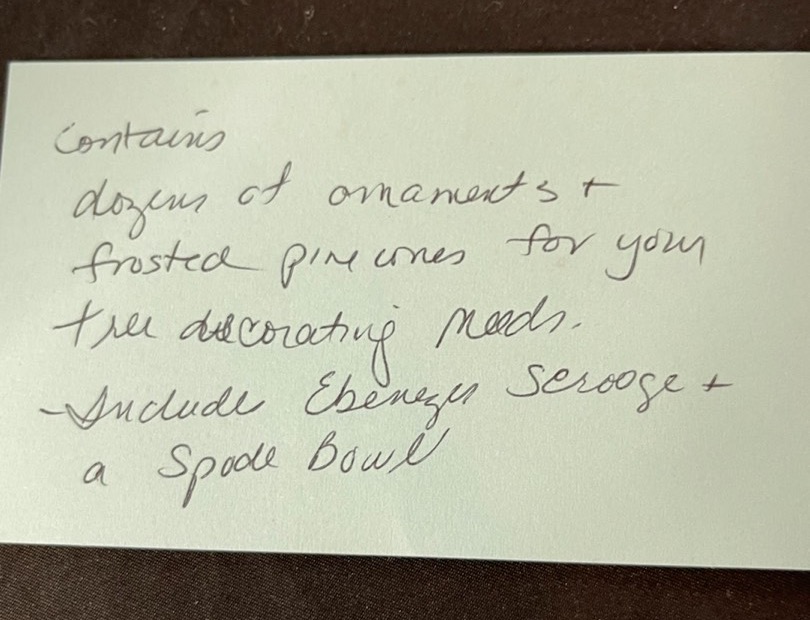 Contains
dozens of ornaments +
frosted pine cones for your
tree decorating needs.
- Include Ebenezer Scrooge +
a Spode Bowl